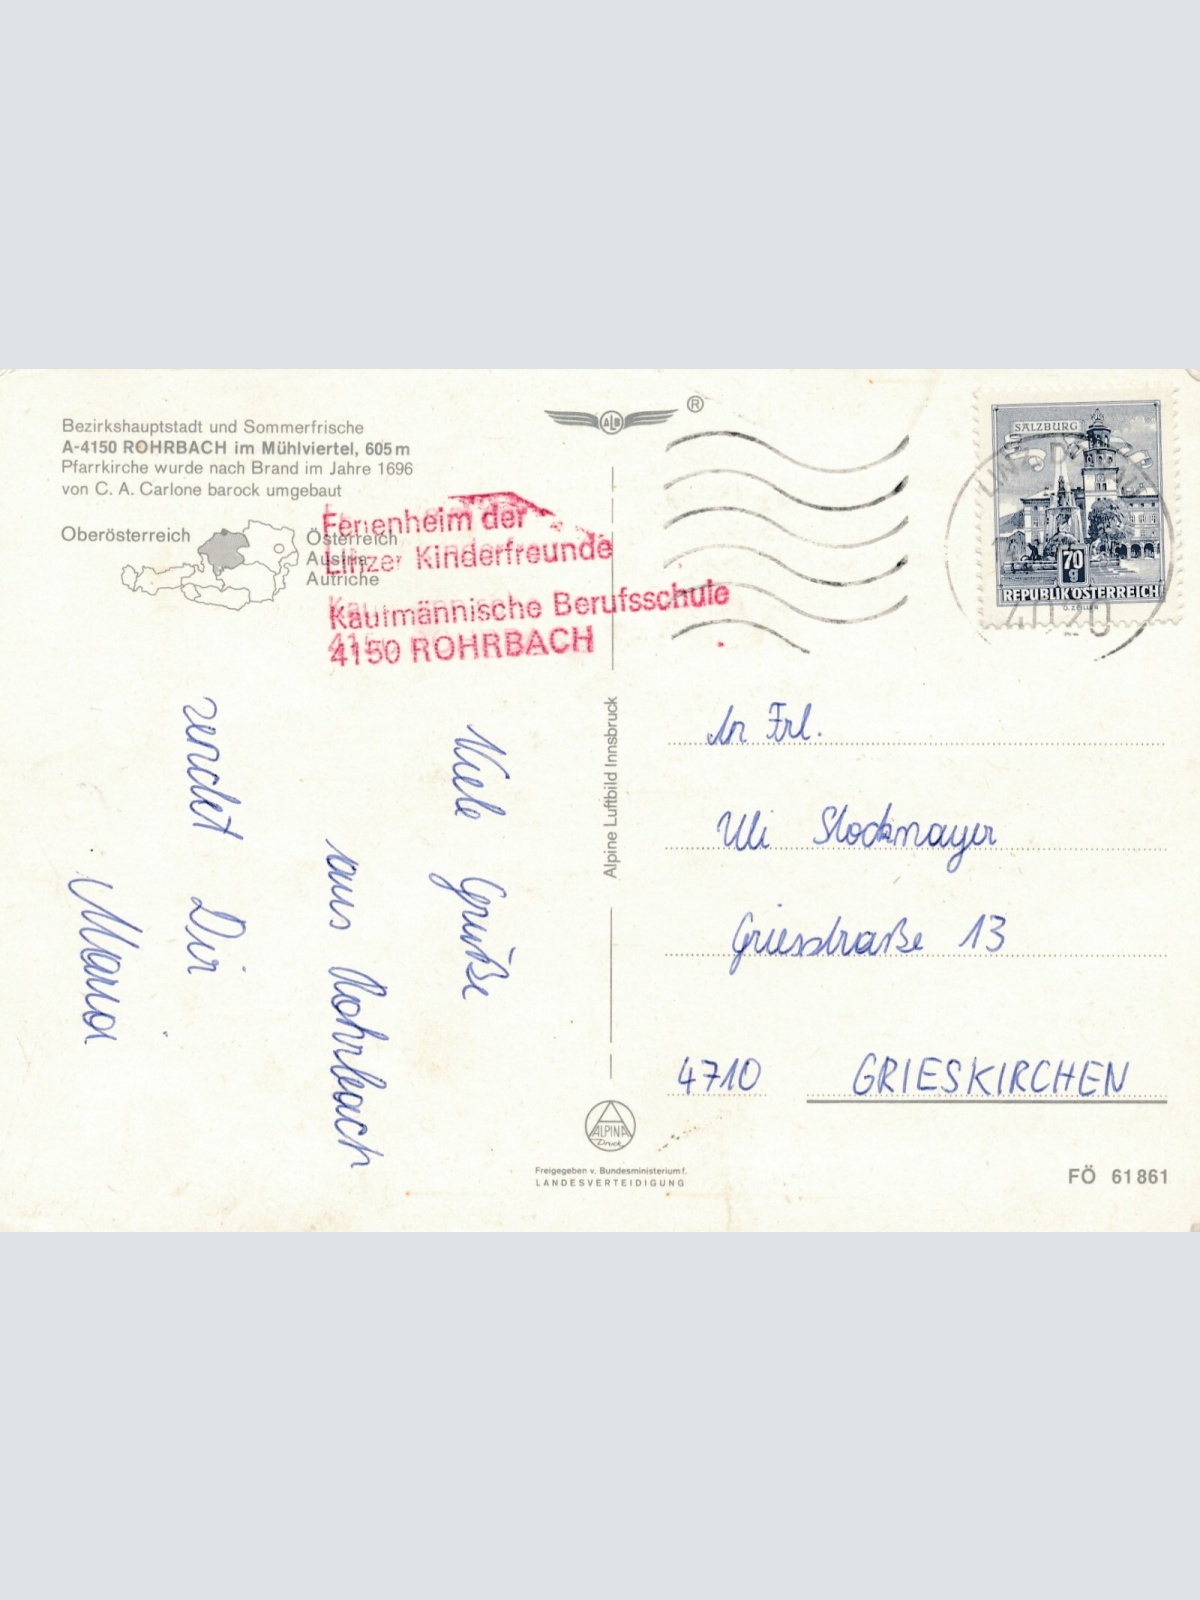 Bezirkshauptstadt und Sommerfrische
A-4150 ROHRBACH im Mühlviertel, 605 m
Pfarrkirche wurde nach Brand im Jahre 1696
von C. A. Carlone barock umgebaut
Oberösterreich
Österreich
Austria
Autriche
Ferienheim der
Linzer Kinderfreunde
Kaufmännische Berufsschule
4150 ROHRBACH
Viele Grüße
aus Rohrbach
sendet Dir
Maria
ALB
®
Alpine Luftbild Innsbruck
ALPINA
Druck
Freigegeben v. Bundesministerium f.
LANDESVERTEIDIGUNG
SALZBURG
70
g
REPUBLIK ÖSTERREICH
4020
An Frl.
Uli Stockmayer
Griesstraße 13
4710 GRIESKIRCHEN
FÖ 61 861